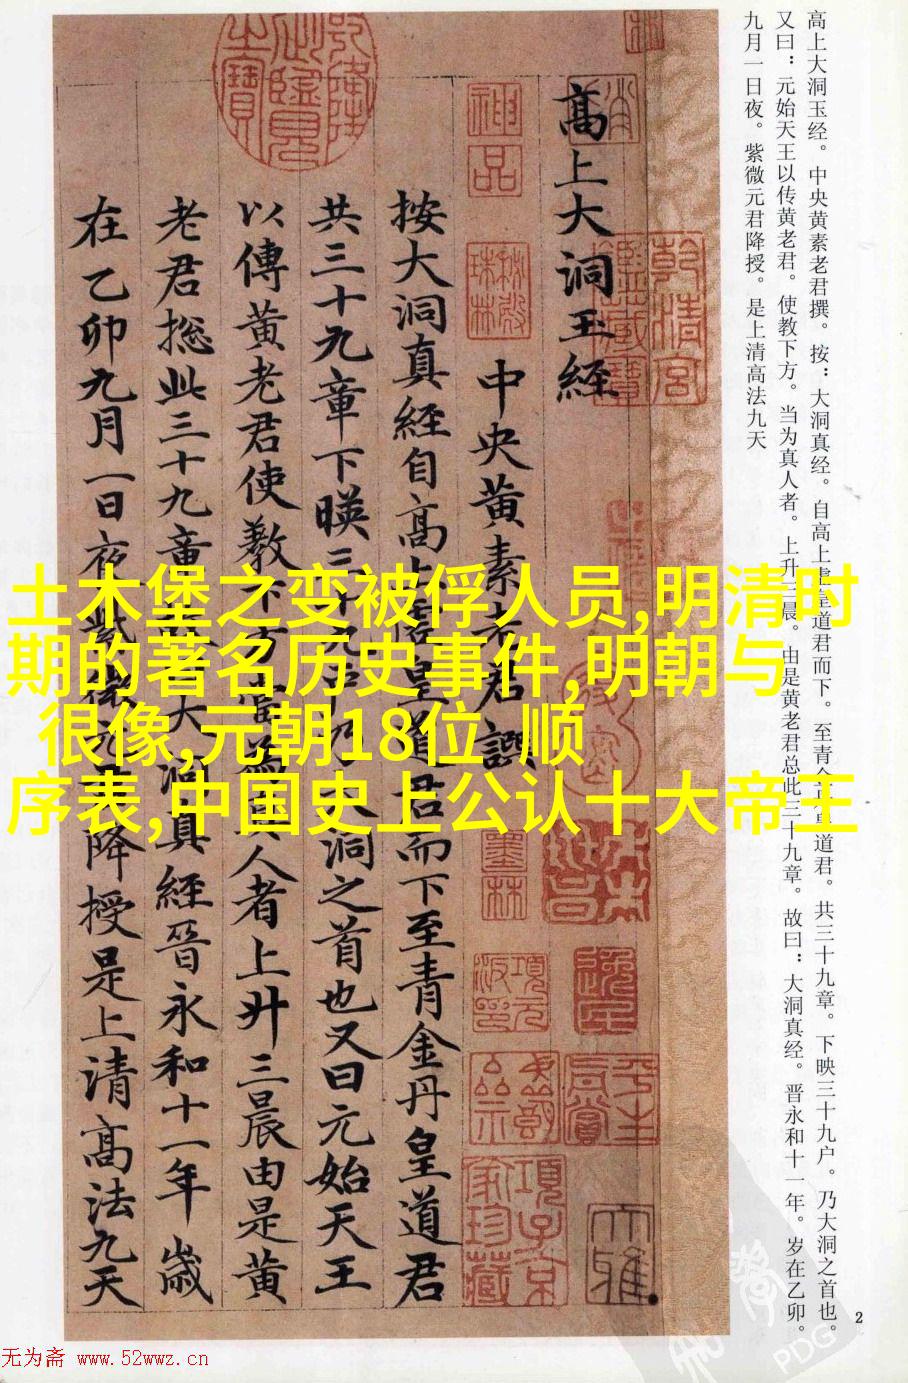 高上大洞玉经。中央黄素老君撰。按：大洞真经。自高上虚皇道君而下。至青金丹皇道君。共三十九章。下映三十九户。乃大洞之首也。
又曰：元始天王以传黄老君。使教下方。当为真人者。上升三晨。由是黄老君总此三十九章。故曰：大洞真经。晋永和十一年。岁在乙卯。
九月一日夜。紫微元君降授。是上清高法九天
高上大洞玉經
中央黄素老君譔
按大洞真經自高上虛皇道君而下至青金丹皇道君
共三十九章下暎三十九户
大洞之首也又曰元始天王
以傳黄老君使教下方當為真人者上升三晨由是黄
老君揔此三十九章
大洞真經晉永和十一年歲
在乙卯九月一日夜紫微
降授是上清高法九天
神品
乾清宫鑑藏寶
墨林
平生真賞
項子京家珍藏
土木堡之变被俘人员,明清时
期的著名历史事件,明朝与
很像,元朝18位 顺
序表,中国史上公认十大帝王
2
PDG
无为斋 www.52wwz.cn